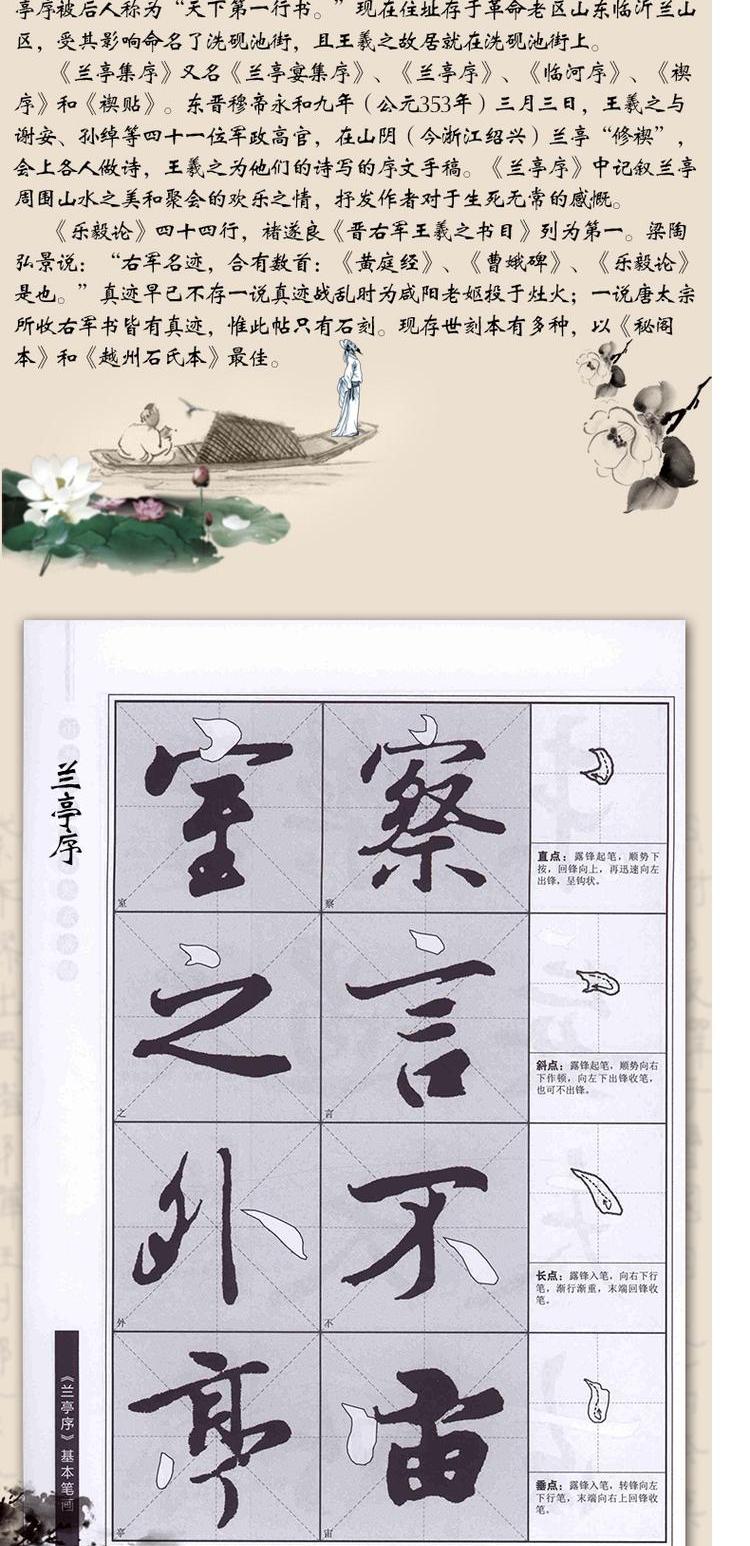 亭序被后人称为“天下第一行书。”现在住址存于革命老区山东临沂兰山
区，受其影响命名了洗砚池街，且王羲之故居就在洗砚池街上。
《兰亭集序》又名《兰亭宴集序》、《兰亭序》、《临河序》、《禊
序》和《禊贴》。东晋穆帝永和九年（公元353年）三月三日，王羲之与
谢安、孙绰等四十一位军政高官，在山阴（今浙江绍兴）兰亭“修禊”，
会上各人做诗，王羲之为他们的诗写的序文手稿。《兰亭序》中记叙兰亭
周围山水之美和聚会的欢乐之情，抒发作者对于生死无常的感慨。
《乐毅论》四十四行，褚遂良《晋右军王羲之书目》列为第一。梁陶
弘景说：“右军名迹，合有数首：《黄庭经》、《曹娥碑》、《乐毅论》
是也。”真迹早已不存一说真迹战乱时为咸阳老妪投于灶火；一说唐太宗
所收右军书皆有真迹，惟此帖只有石刻。现存世刻本有多种，以《秘阁
本》和《越州石氏本》最佳。
兰亭序
室 察
室 察
直点：露锋起笔，顺势下
按，回锋向上，再迅速向左
出锋，呈钩状。
之 言
之 言
斜点：露锋起笔，顺势向右
下作顿，向左下出锋收笔，
也可不出锋。
外 不
外 不
长点：露锋入笔，向右下行
笔，渐行渐重，末端回锋收
笔。
亭 宙
亭 宙
垂点：露锋入笔，转锋向左
下行笔，末端向右上回锋收
笔。
《兰亭序》基本笔画